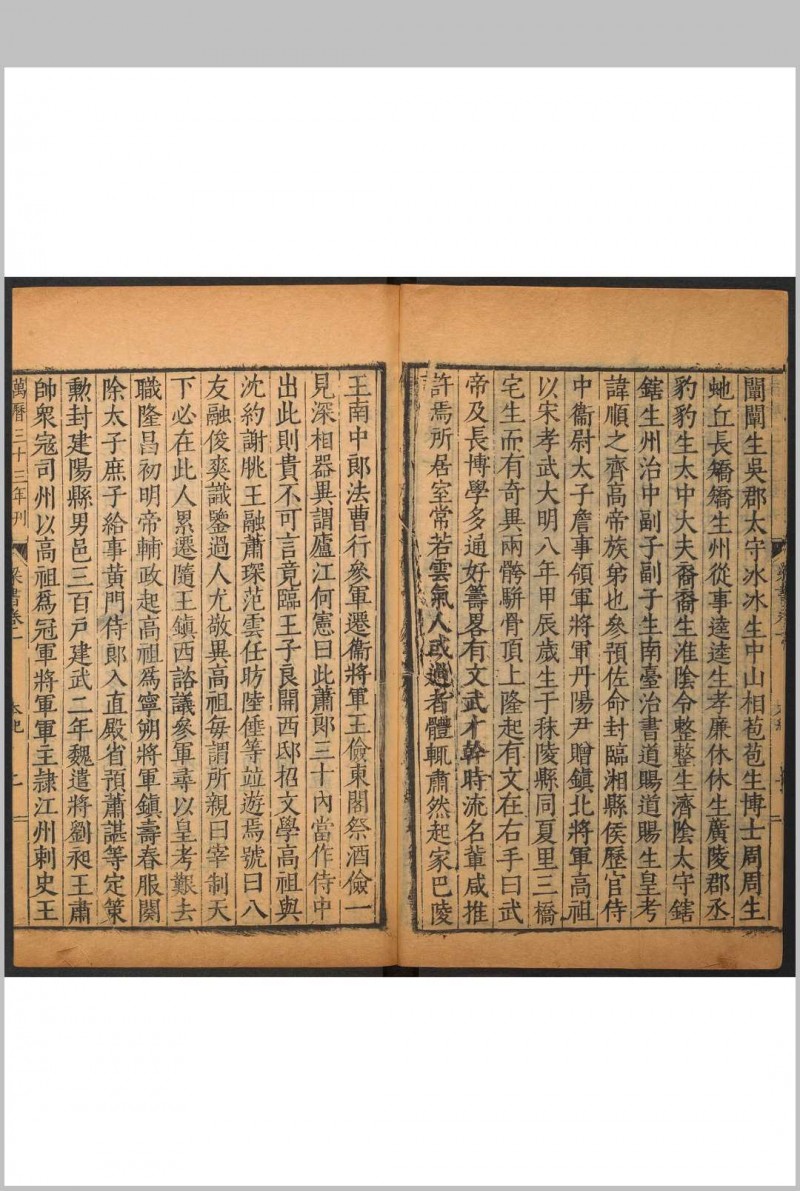 闡闡生吳郡太守冰冰生中山相苞苞生博士周周生
虵丘長矯矯生州從事逵逵生孝廉休休生廣陵郡丞
豹豹生太中大夫裔裔生淮陰令整整生濟陰太守鎋
鎋生州治中副子副子生南臺治書道賜道賜生皇考
諱順之齊高帝族弟也參預佐命封臨湘縣侯歷官侍
中衞尉太子詹事領軍將軍丹陽尹贈鎮北將軍高祖
以宋孝武大明八年甲辰歲生于秣陵縣同夏里三橋
宅生而有奇異兩骻駢骨頂上隆起有文在右手曰武
帝及長博學多通好籌畧有文武才幹時流名輩咸推
許焉所居室常若雲氣人或過者體輒肅然起家巴陵
王南中郎法曹行參軍遷衞將軍王儉東閣祭酒儉一
見深相器異謂廬江何憲曰此蕭郎三十內當作侍中
出此則貴不可言竟臨王子良開西邸招文學高祖與
沈約謝朓王融蕭琛范雲任昉陸倕等竝遊焉號曰八
友融俊爽識鑒過人尤敬異高祖每謂所親曰宰制天
下必在此人累遷隨王鎮西諮議參軍尋以皇考艱去
職隆昌初明帝輔政起高祖爲寧朔將軍鎮壽春服闋
除太子庶子給事黃門侍郎入直殿省預蕭諶等定策
勲封建陽縣男邑三百戸建武二年魏遣將劉昶王肅
帥衆寇司州以高祖爲冠軍將軍軍主隷江州刺史王
萬曆三十三年刊 梁書卷一